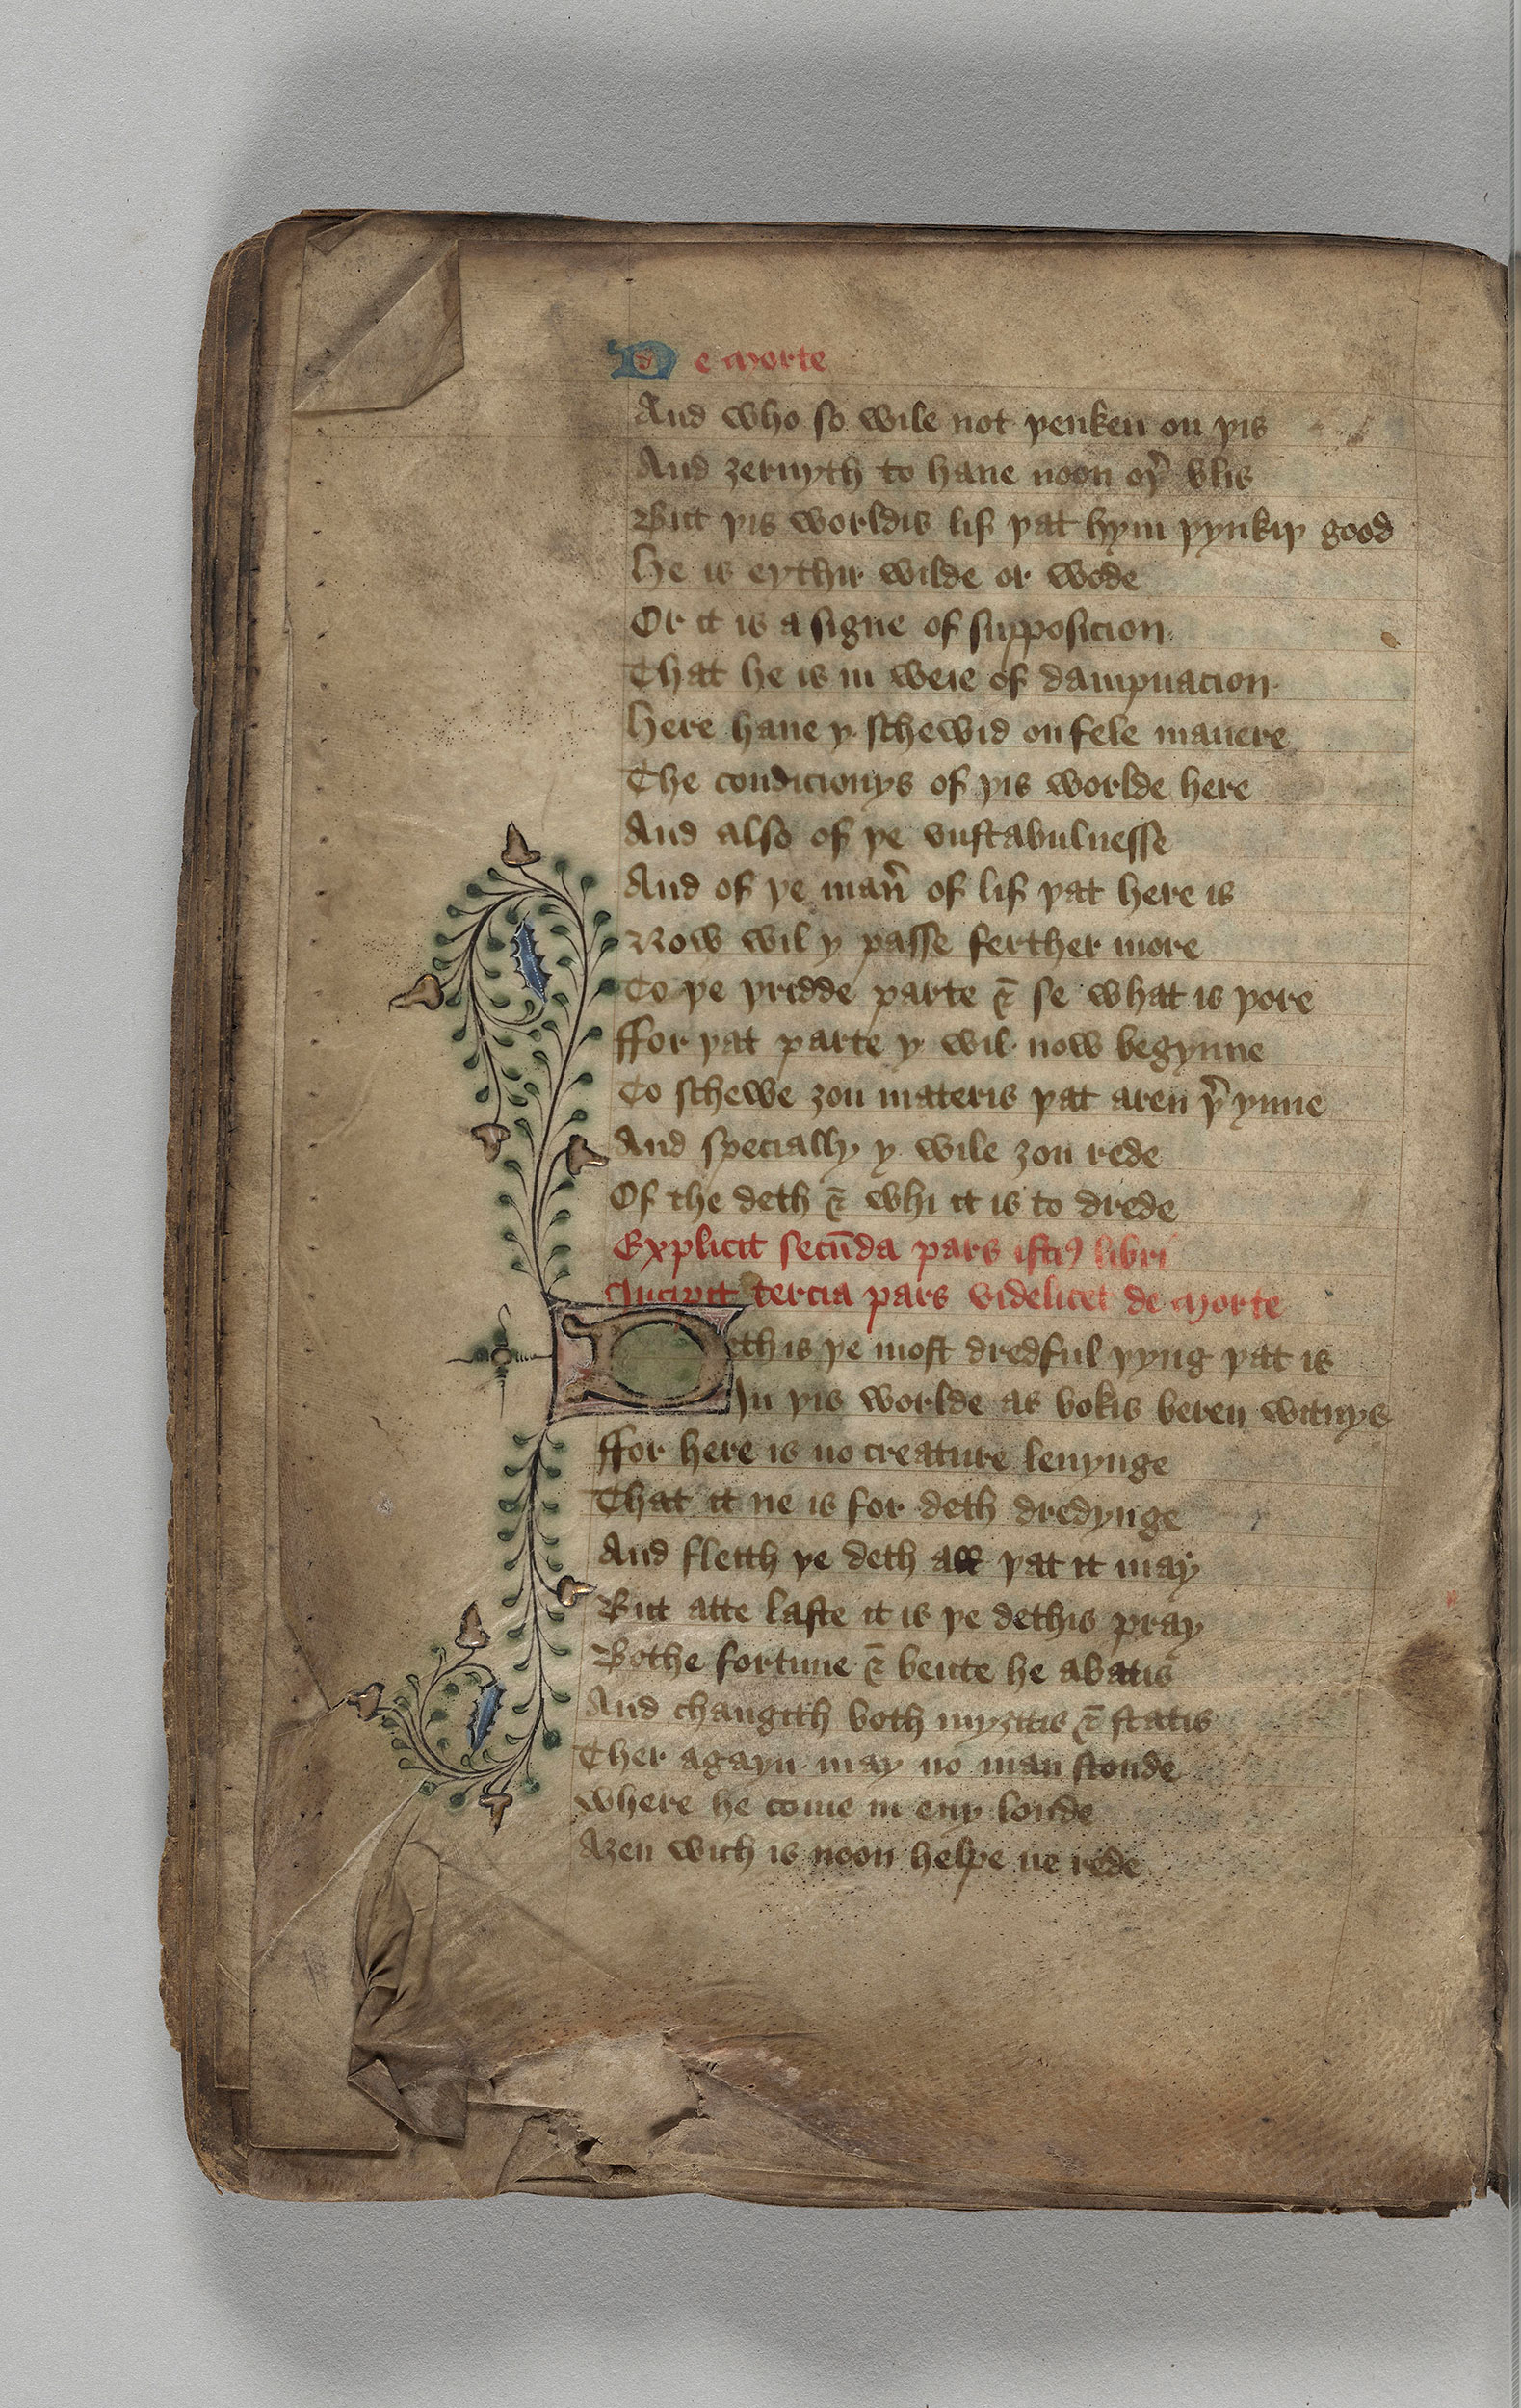 De morte
And who so wile not þenken on þis
And ȝernyth to haue noon oþ̉ blis
But þis worldis lif þat hym þynkiþ good
He is eythir wilde or wode
Or it is a signe of supposicion
That he is in weie of dampnacion
Here haue y schewid on fele manere
The condicionys of þis worlde here
And also of þe vnstabulnesse
And of þe man̉ of lif þat here is
Now wil y passe ferther more
To þe þridde parte & se what is þore
ffor þat parte y wil now begynne
To schewe ȝou materis þat aren þ̉ ynne
And specially y wile ȝou rede
Of the deth & whi it is to drede
Explicit secūda pars istiꝰ libri
Incipit tercia pars videlicet de morte
Deth is þe most dredful þyng þat is
In þis worlde as bokis beren witnys
ffor here is no creature leuynge
That it ne is for deth dredynge
And fleith þe deth all þat it may
But atte laste it is þe dethis pray
Bothe fortune & beute he abatis
And changith both myȝtis & statis
Ther agayn may no man stonde
where he come in eny londe
Aȝen wich is noon helpe ne rede